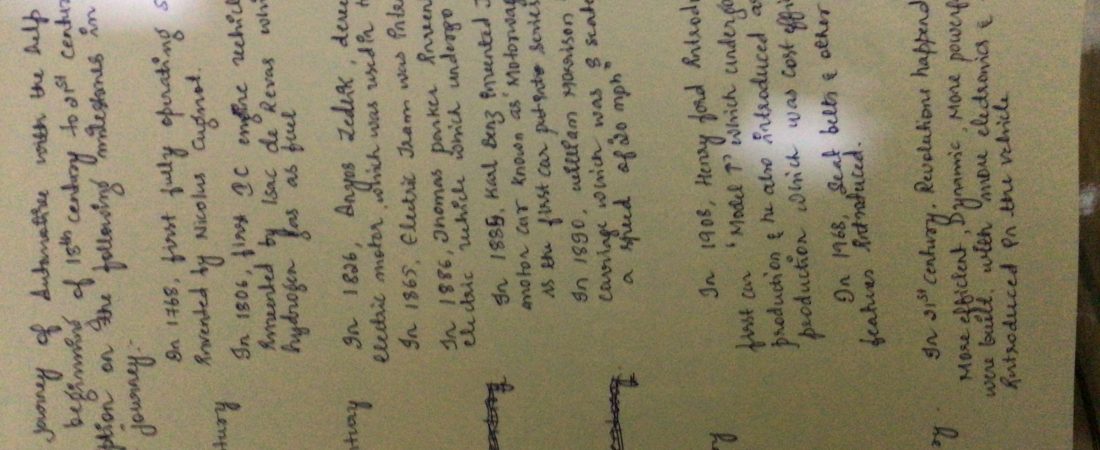 journey of Automative with the help
beginning of 18th century to 21st centu
ption on the following milestones in
journey:-
In 1768, first fully operating S
Invented by Nicolus Cugnot.
tury
In 1806, first IC engine vehicl
Invented by Isac de Revas whi
hydrogen gas as fuel
In 1826, Anyos Jedlik, deve
electric motor, which was used in
ntury
In 1865, Electric Tram was Inte
In 1886, Thomas parker Inven
electric vehicle which undergo
In 1885, Karl Benz Invented
motor car known as Motorwag
is the first car put into series
In 1890, William Morrison
carriage which was 8 seate
a speed of 20 mph"
In 1908, Henry ford Introdu
first car "Model T" which undergo
production & he also introduced as
production which was cost effi
In 1968, Seat belts & other
features Introduced.
ry
In 21st century, Revolutions happend
More efficient, Dynamic, More powerfu
were built. with more electronics &
Introduced In the vehicle
ry.